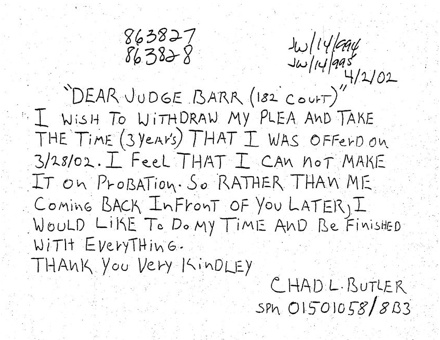 863827
863828
JW/14/994
JW/14/995
4/2/02
"DEAR JUDGE BARR (182' COURT)"
I WISH TO WITHDRAW MY PLEA AND TAKE
THE TIME (3 YEAR'S) THAT I WAS OFFERD ON
3/28/02. I FEEL THAT I CAN NOT MAKE
IT ON PROBATION. SO RATHER THAN ME
COMING BACK INFRONT OF YOU LATER, I
WOULD LIKE TO DO MY TIME AND BE FINISHED
WITH EVERYTHING.
THANK YOU VERY KINDLEY
CHAD L. BUTLER
SPN 01501058/8B3